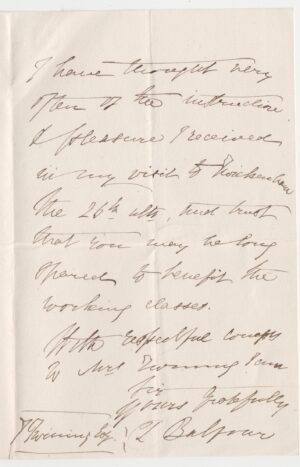 I have thought very
often of the instruction
& pleasure I received
in my visit to Twickenham
the 26th ulto, and trust
that you may be long
spared to benefit the
working classes.
With respectful compts
to Mrs Twining I am
Sir
Yours gratefully
T Twining Esq. } Balfour